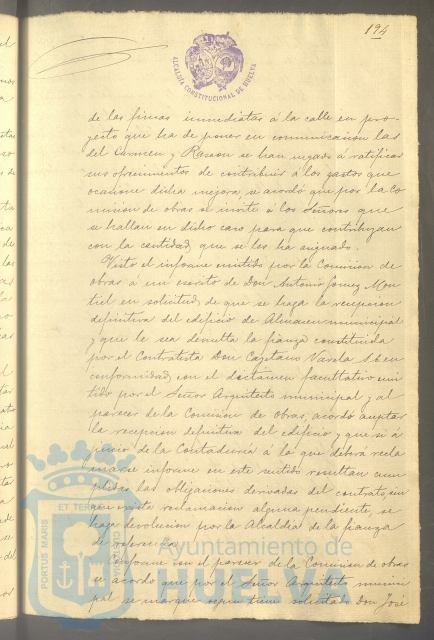 194
ALCALDÍA CONSTITUCIONAL DE HUELVA
de las fincas inmediatas á la calle en pro-
yecto que ha de poner en comunicacion las
del Carmen y Rascon se han negado á ratificar
sus ofrecimientos de contribuir á los gastos que
ocasione dicha mejora, se acordó que por la Co
mision de obras se invite á los Señores que
se hallan en dicho caso para que contribuyan
con la cantidad que se les ha asignado.
Visto el informe emitido por la Comision de
obras á un escrito de Don Antonio Gomez Mon
tiel en solicitud de que se haga la recepcion
definitiva del edificio de Almacen municipal
y que le sea devuelta la fianza constituida
por el Contratista Don Cayetano Varela S. E. en
conformidad con el dictamen facultativo emi
tido por el Señor Arquitecto municipal y al
parecer de la Comision de obras, acordó aceptar
la recepcion definitiva del edificio y que si á
juicio de la Contaduria á la que deberá recla
marse informe en este sentido resultan cum
plidas las obligaciones derivadas del contrato, sin
que exista reclamacion alguna pendiente, se
haga devolucion por la Alcaldía de la fianza
de referencia.
Conforme con el parecer de la Comision de obras
se acordó que por el Señor Arquitecto munici
pal se marque segun tiene solicitado Don José
PORTUS MARIS
ET TERRAE
CUSTODIA
Ayuntamiento de
HUELVA